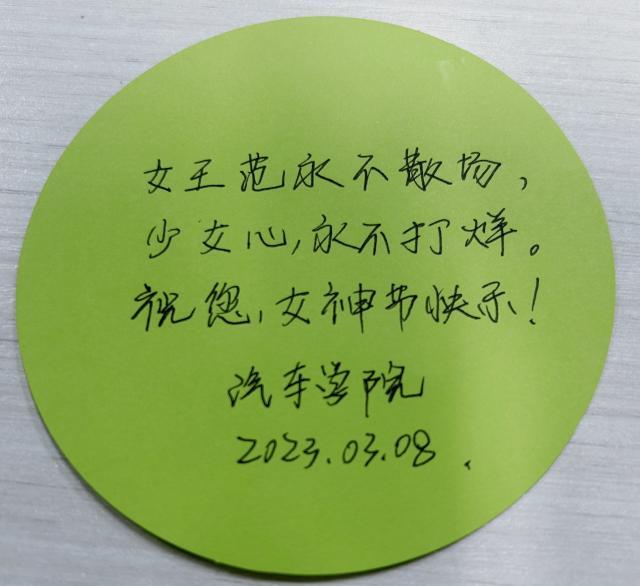 女王范永不散场,
少女心,永不打烊。
祝您,女神节快乐!
汽车学院
2023.03.08.